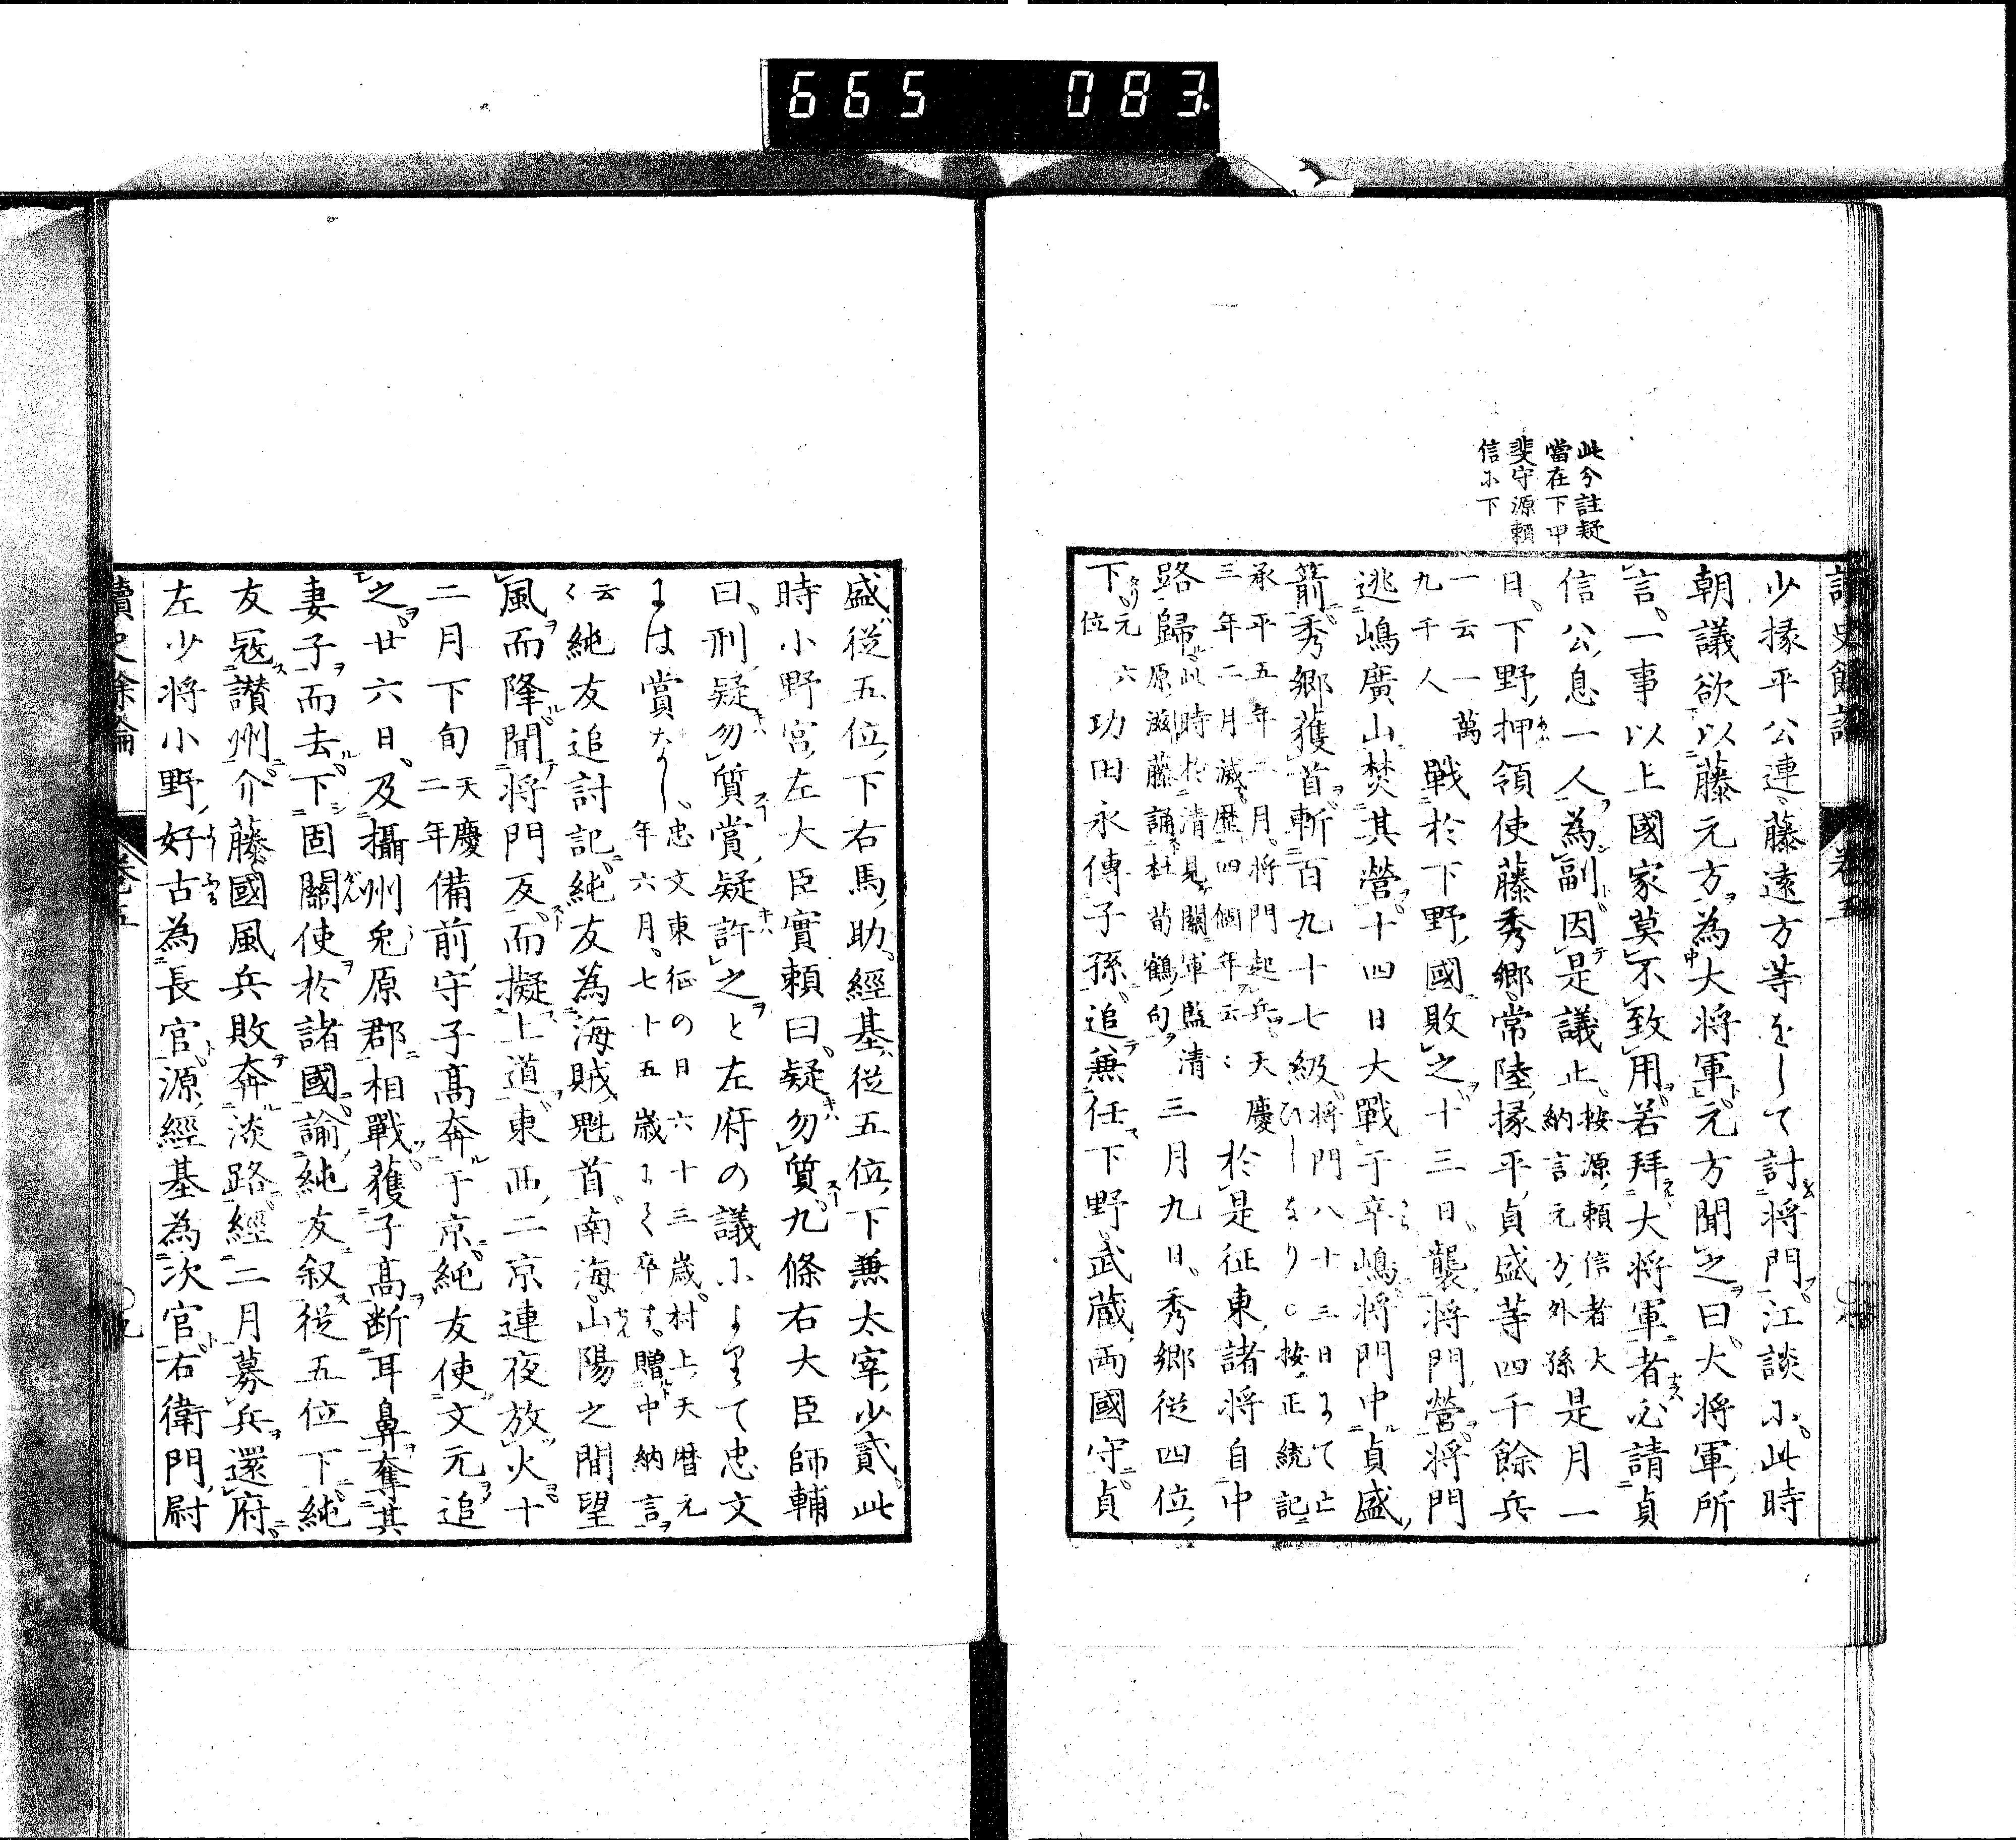 665 083
此分註疑
當在下甲
斐守源頼
信小下
讀史餘論 卷五
少掾平公連、藤遠方等をして討將門。江談小。此時
朝議欲以藤元方為大将軍。元方聞之曰、大将軍所
言。一事以上國家莫不致用。若拜大将軍者必請貞
信公息一人為副。因是議止。按源頼信者大納言元方外孫 是月一
日。下野押領使藤秀郷、常陸掾平貞盛等四千餘兵
一云一萬九千人 戰於下野。國敗之。十三日。襲将門營。将門
逃嶋廣山。焚其營。十四日大戰于辛嶋。将門中貞盛
箭。秀郷獲首。斬百九十七級。将門八十三日にて亡ひしなり。○按、正統記
承平五年二月。将門起兵。天慶三年二月滅。歴四個年云々 於是征東諸将自中
路歸。此時於清見關軍監清原滋藤誦杜荀鶴句 三月九日。秀郷従四位
下。元六位 功田永傳子孫。追兼任下野武蔵両國守。貞
盛従五位下右馬助。經基従五位下兼太宰少貳。此
時小野宮左大臣實頼曰。疑勿質。九條右大臣師輔
曰。刑疑勿質。賞疑許之と左府の議により て忠文
には賞なし。忠文東征の日六十三歳。村上天暦元年六月、七十五歳にて卒す。贈中納言
云〻純友追討記。純友為海賊魁首。南海山陽之間望
風而降。聞将門反。而擬上道。東西二京連夜放火。十
二月下旬天慶二年 備前守子高奔于京。純友使文元追
之。廿六日。及攝州兎原郡。相戰。獲子高断耳鼻。奪其
妻子而去。下固關使於諸國。諭純友叙従五位下。純
友冦讃州。介藤國風兵敗奔淡路。經二月募兵還府。
左少将小野好古為長官。源經基為次官。右衛門尉
讀史餘論 卷五 九